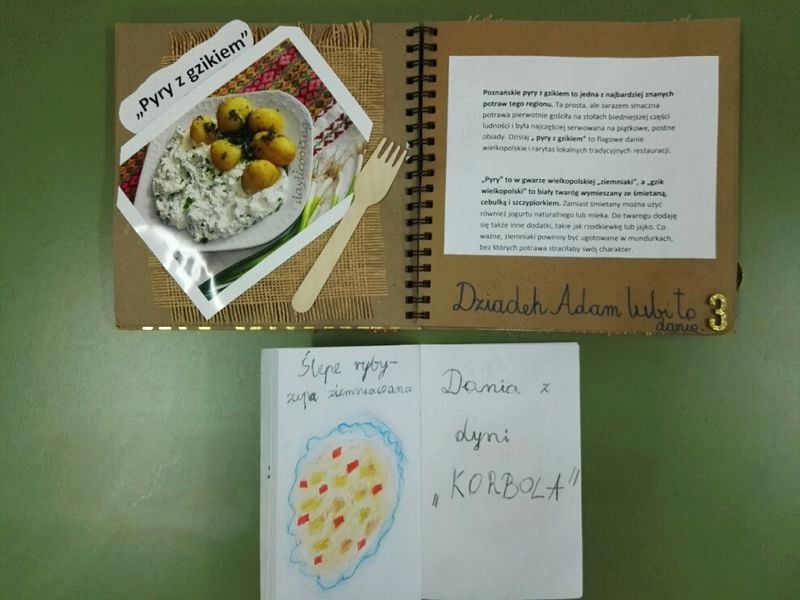 „Pyry z gzikiem”
daylicooking
Poznańskie pyry z gzikiem to jedna z najbardziej znanych
potraw tego regionu. Ta prosta, ale zarazem smaczna
potrawa pierwotnie gościła na stołach biedniejszej części
ludności i była najczęściej serwowana na piątkowe, postne
obiady. Dzisiaj „ pyry z gzikiem” to flagowe danie
wielkopolskie i rarytas lokalnych tradycyjnych restauracji.
„Pyry” to w gwarze wielkopolskiej „ziemniaki”, a „gzik
wielkopolski” to biały twaróg wymieszany ze śmietaną,
cebulką i szczypiorkiem. Zamiast śmietany można użyć
również jogurtu naturalnego lub mleka. Do twarogu dodaję
się także inne dodatki, takie jak rzodkiewkę lub jajko. Co
ważne, ziemniaki powinny być ugotowane w mundurkach,
bez których potrawa straciłaby swój charakter.
Dziadek Adam lubi to
danie.
3
Ślepe ryby-
zupa ziemniaczana
Dania z
dyni
„KORBOLA”